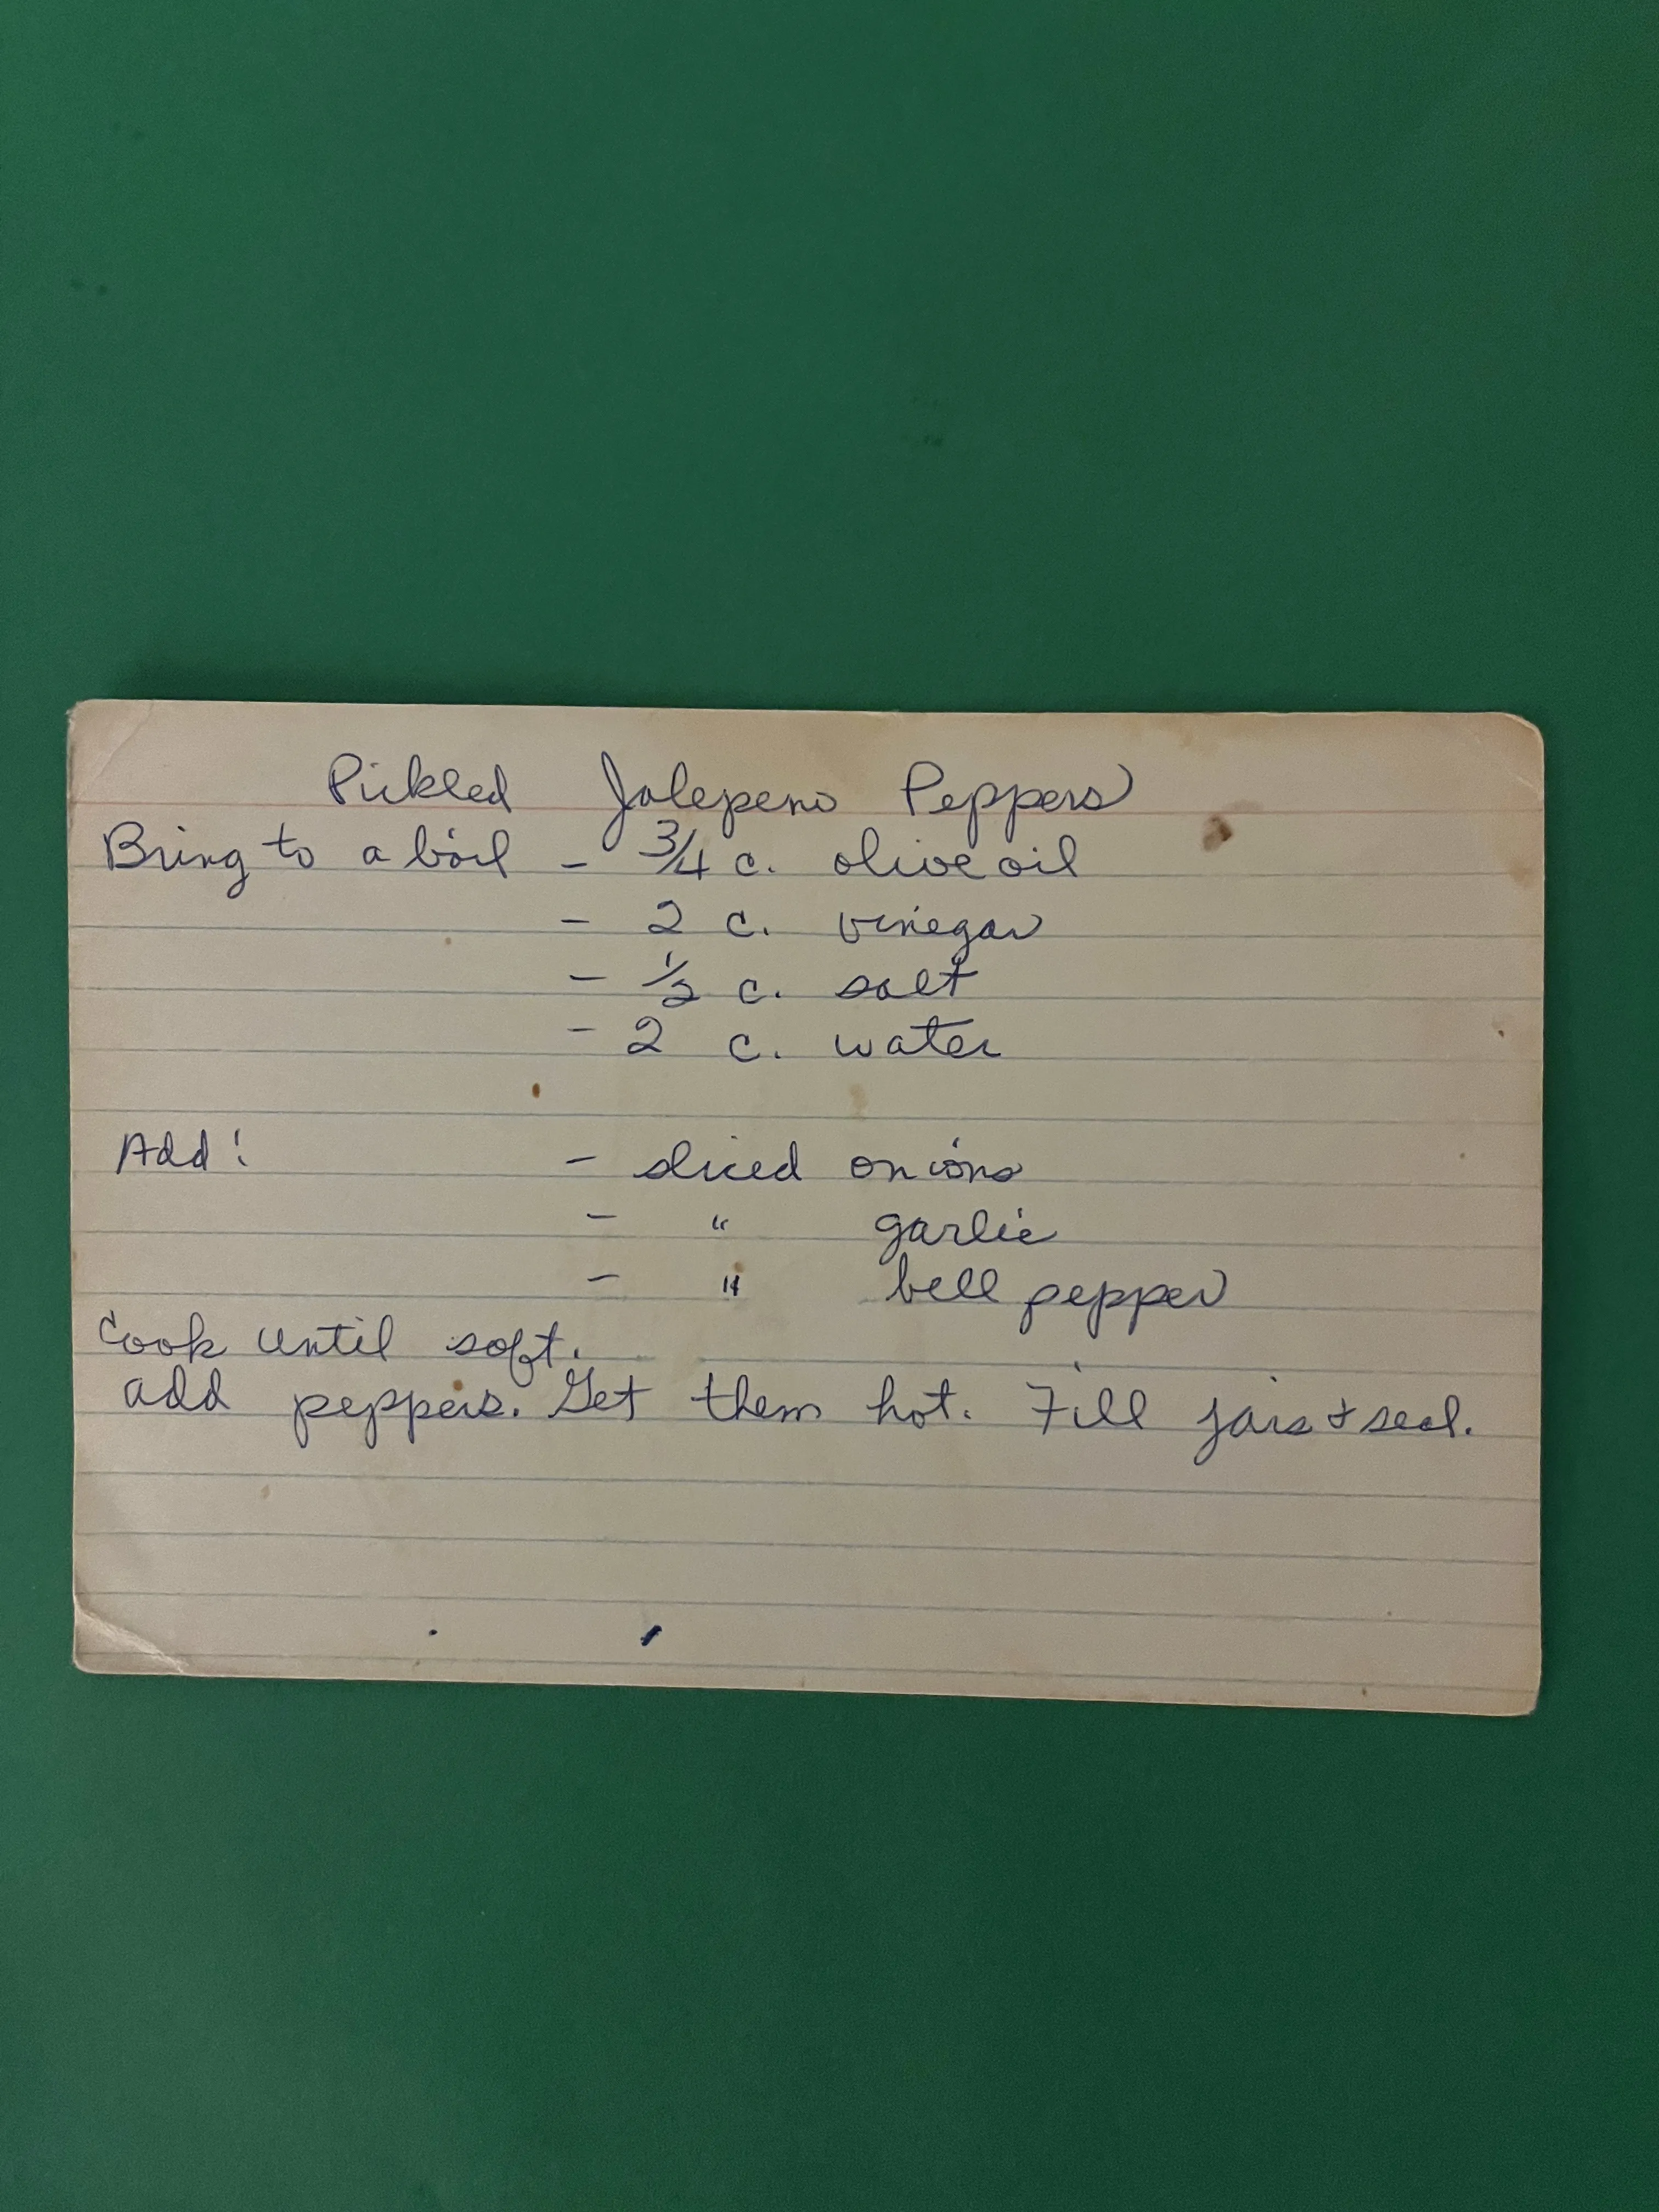 Pickled Jalepeno Peppers
Bring to a boil - 3/4 c. olive oil
- 2 c. vinegar
- 1/2 c. salt
- 2 c. water
Add: - sliced onions
- " garlic
- " bell pepper
Cook until soft.
add peppers. Get them hot. Fill jars & seal.